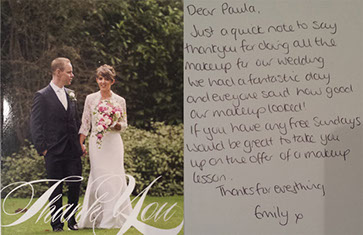 Thank You
Dear Paula,
Just a quick note to say
thankyou for doing all the
makeup for our wedding
we had a fantastic day
and everyone said how good
our makeup looked!
If you have any free Sundays
would be great to take you
up on the offer of a makeup
lesson.
Thanks for everything
Emily x